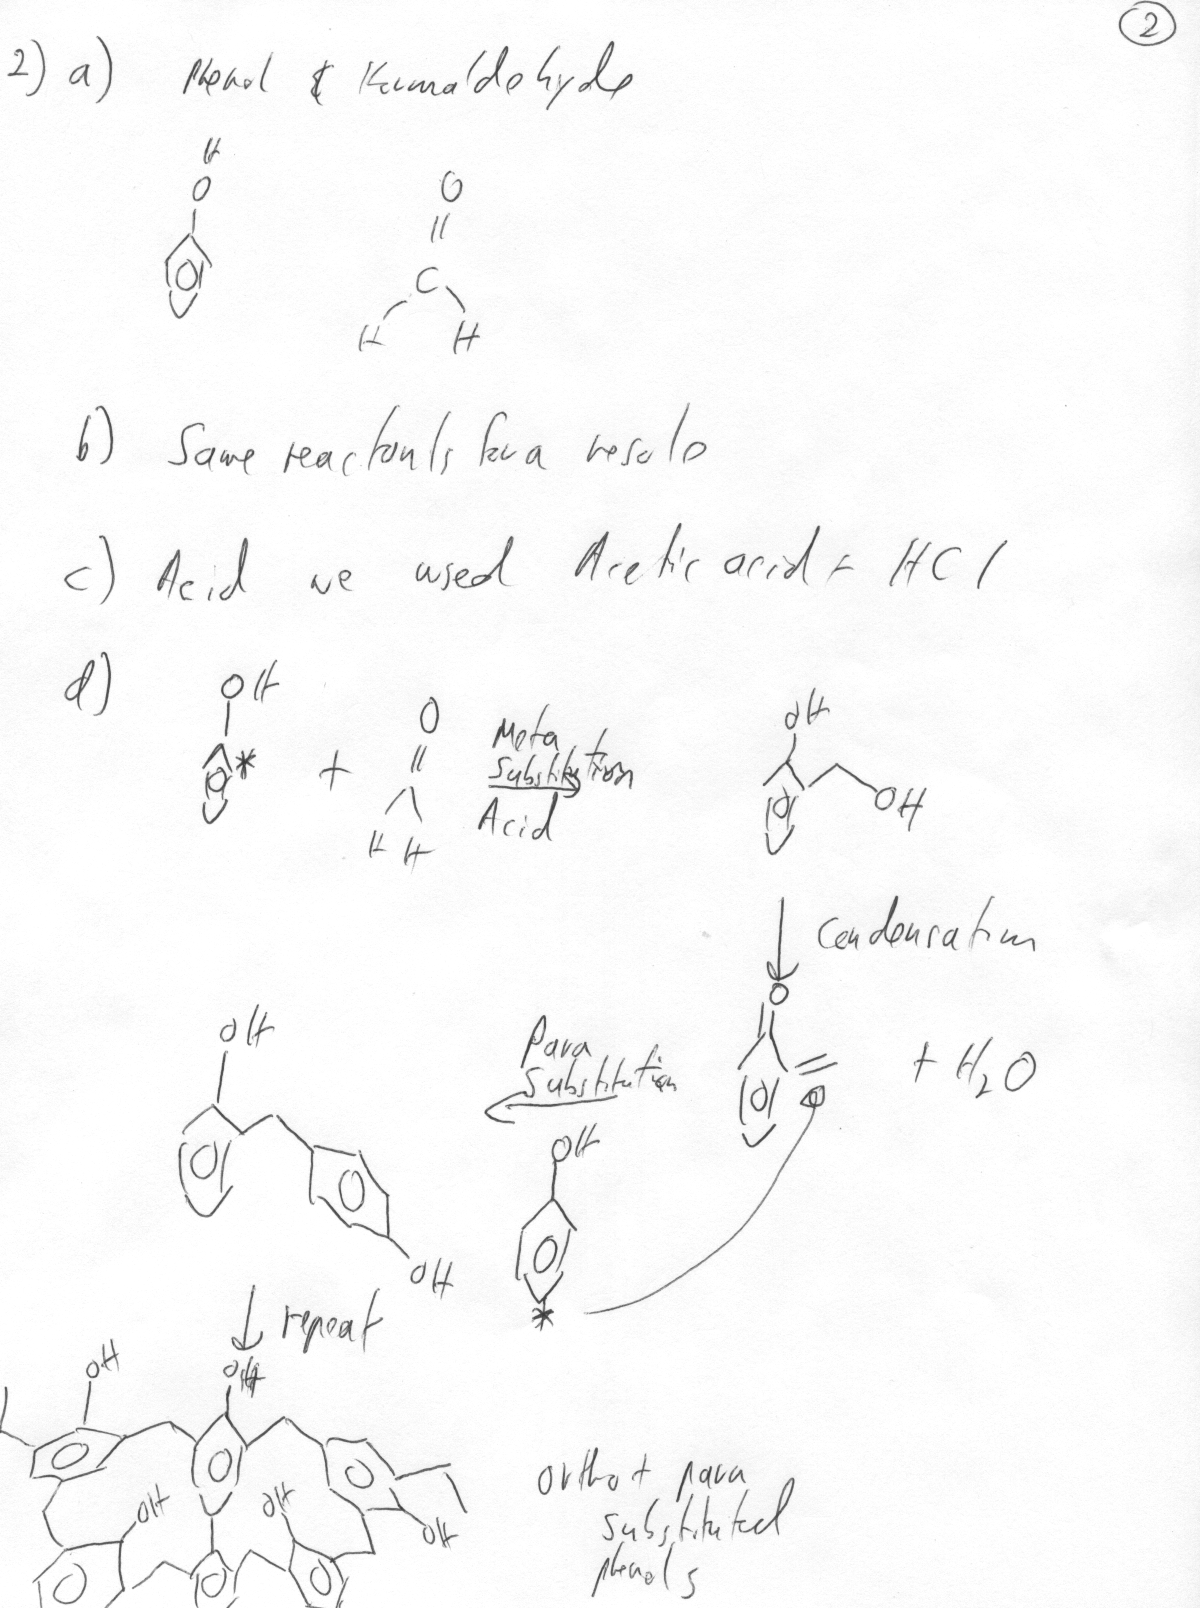 2
2) a) Phenol & Formaldehyde
H
O
O
C
H H
b) Same reactants for a resole
c) Acid we used Acetic acid + HCl
d) OH
* + O
H H
Meta
Substitution
Acid
OH
OH
Condensation
O
+ H2O
Para
Substitution
OH
*
OH
OH
repeat
OH
OH
OH
OH
OH
Ortho + para
substituted
phenols